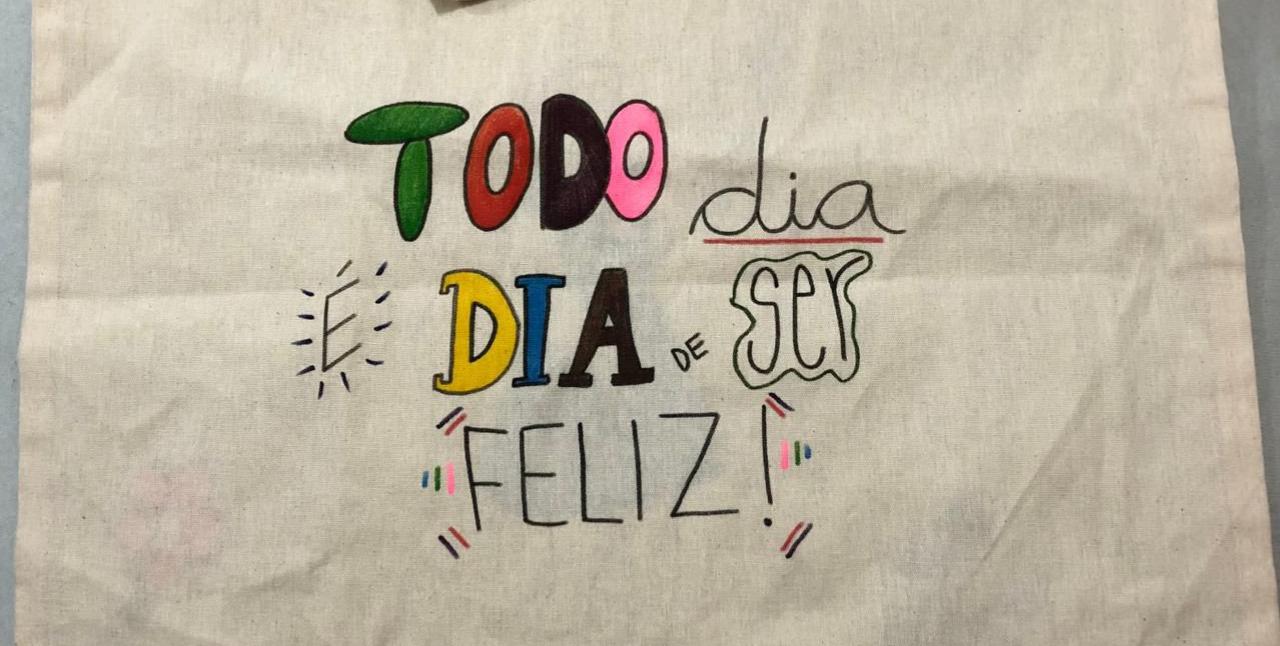 TODO dia
É DIA DE ser
FELIZ!